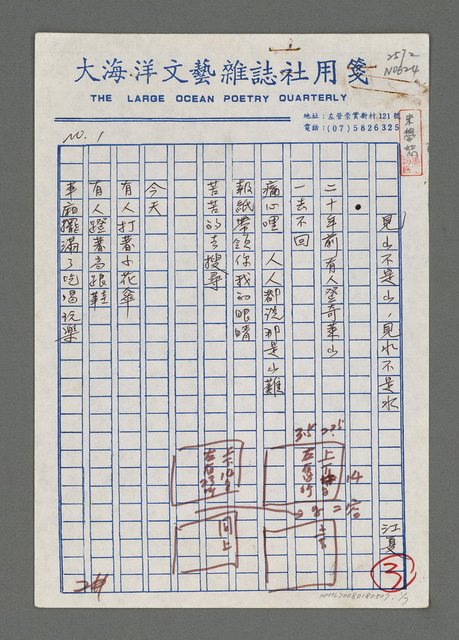 大海洋文藝雜誌社用箋
THE LARGE OCEAN POETRY QUARTERLY
地址：左營崇實新村121號
電話：(07)5826325
NO. 1
見山不是山，見水不是水
江夏
二十年前 有人登奇萊山
一去不回
痛心哩 人人都說那是山難
報紙帶領你我的眼睛
苦苦的去搜尋
今天
有人打著小花傘
有人蹬著高跟鞋
車廂擺滿了吃喝玩樂
3
同上